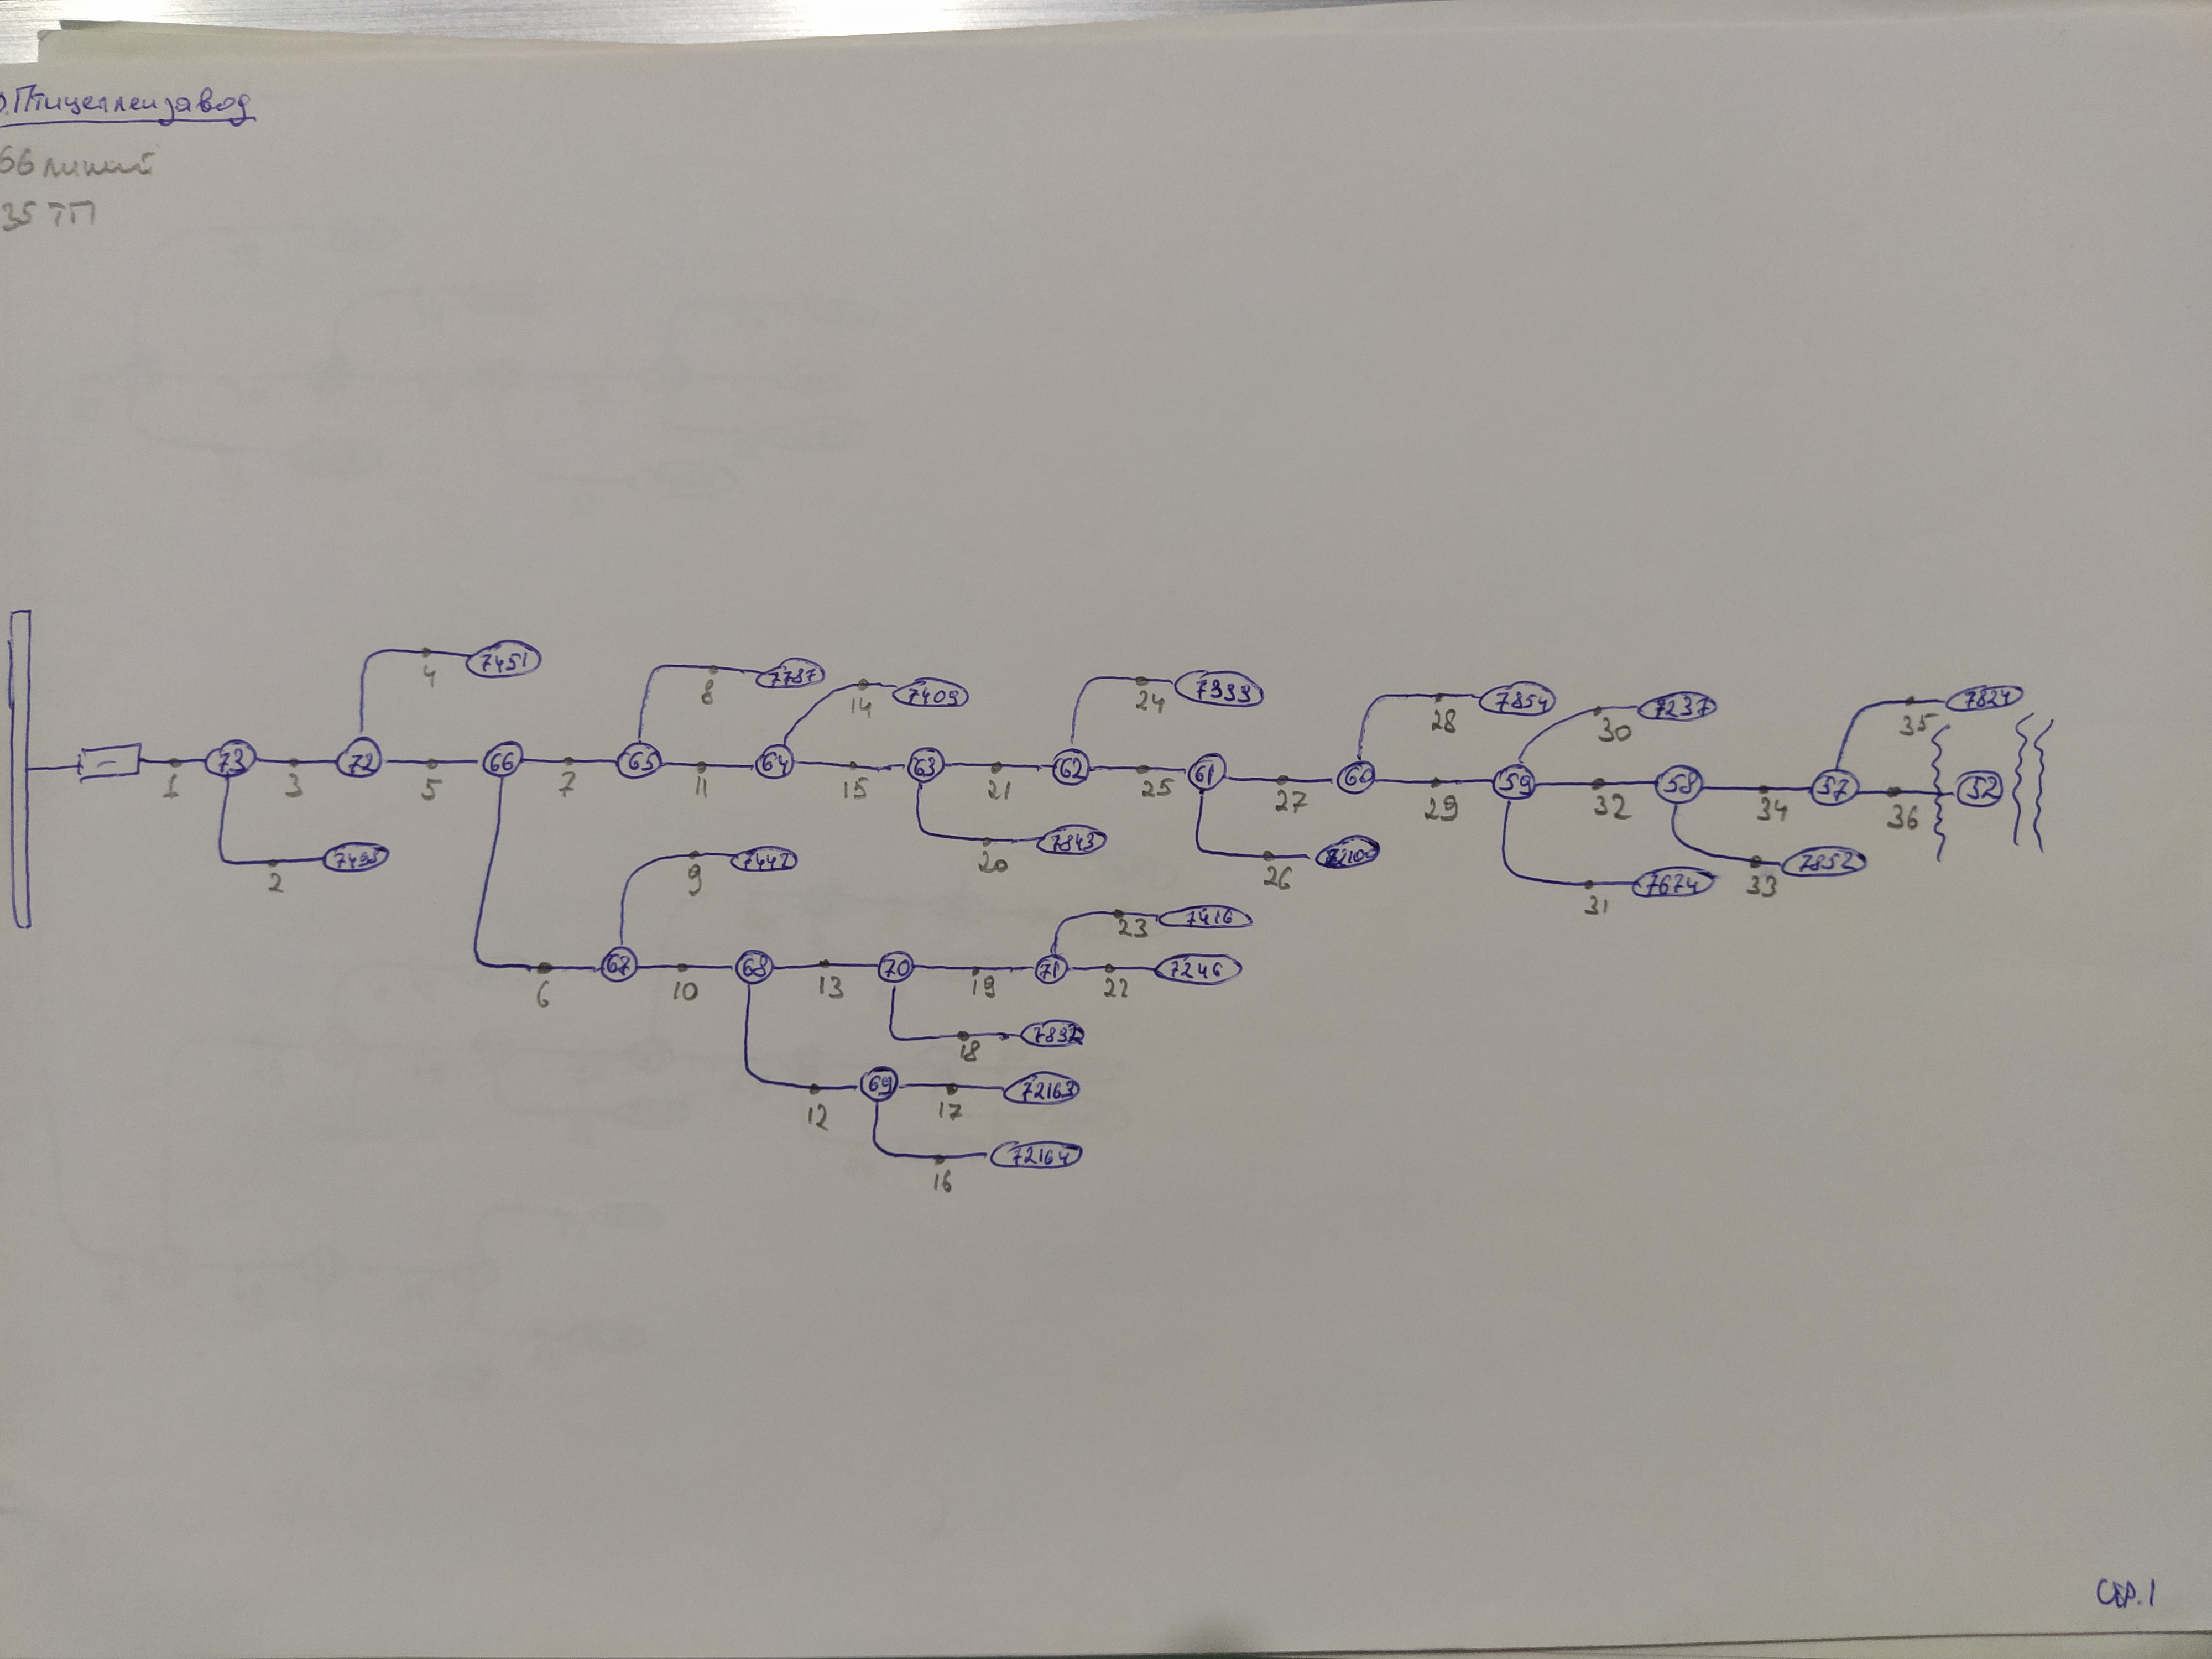 .Птицеплемзавод
66 линий
35 ТП
4
7451
8
7787
14
7409
24
7333
28
7854
30
7237
35
7824
1
73
3
72
5
66
7
65
11
64
15
63
21
62
25
61
27
60
29
59
32
58
34
57
36
52
2
9
7442
20
7843
26
31
7674
33
7852
23
7416
6
67
10
68
13
70
19
71
22
7246
18
7832
12
69
17
72163
16
72164
стр.1